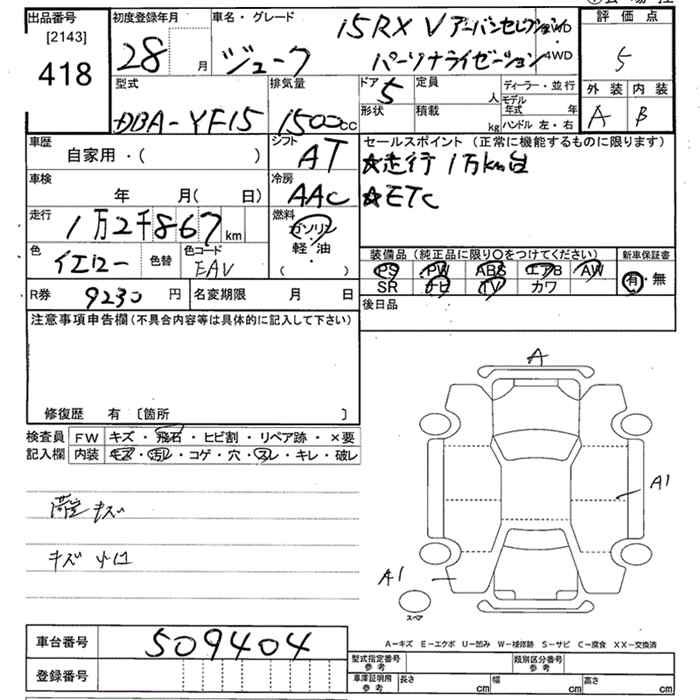 出品番号 [2143] 418
初度登録年月 28 月
車名・グレード ジューク 15RX V アーバンセレクション
パーソナライゼーション 4WD
評価点 5
外装 A 内装 B
型式 DBA-YF15
排気量 1500cc
ドア 5 定員 人
形状 積載 kg
ディーラー・並行
モデル年式 年
ハンドル 左・右
車歴 自家用・( )
シフト AT
セールスポイント (正常に機能するものに限ります)
☆走行 1万km台
☆ETC
車検 年 月( 日)
冷房 AAC
走行 1万2千867km
燃料 ガソリン・軽・油 ( )
色 イエロー 色替 色コード EAV
装備品 (純正品に限り〇をつけてください) 新車保証書
PS PW ABS エアB AW 有・無
SR ナビ TV カワ
R券 9230 円 名変期限 月 日
後日品
注意事項申告欄(不具合内容等は具体的に記入して下さい)
修復歴 有 〔箇所 〕
検査員 FW キズ・飛石・ヒビ割・リペア跡・×要
記入欄 内装 キズ・汚レ・コゲ・穴・スレ・キレ・破レ
キズ
キズ 小凹
A
A1
A1
スペア
A-キズ E-エクボ U-凹み W-補修跡 S-サビ C-腐食 XX-交換済
車台番号 509404
登録番号
型式指定番号 参考 類別区分番号 参考
車庫証明用 参考 長さ cm 幅 cm 高さ cm